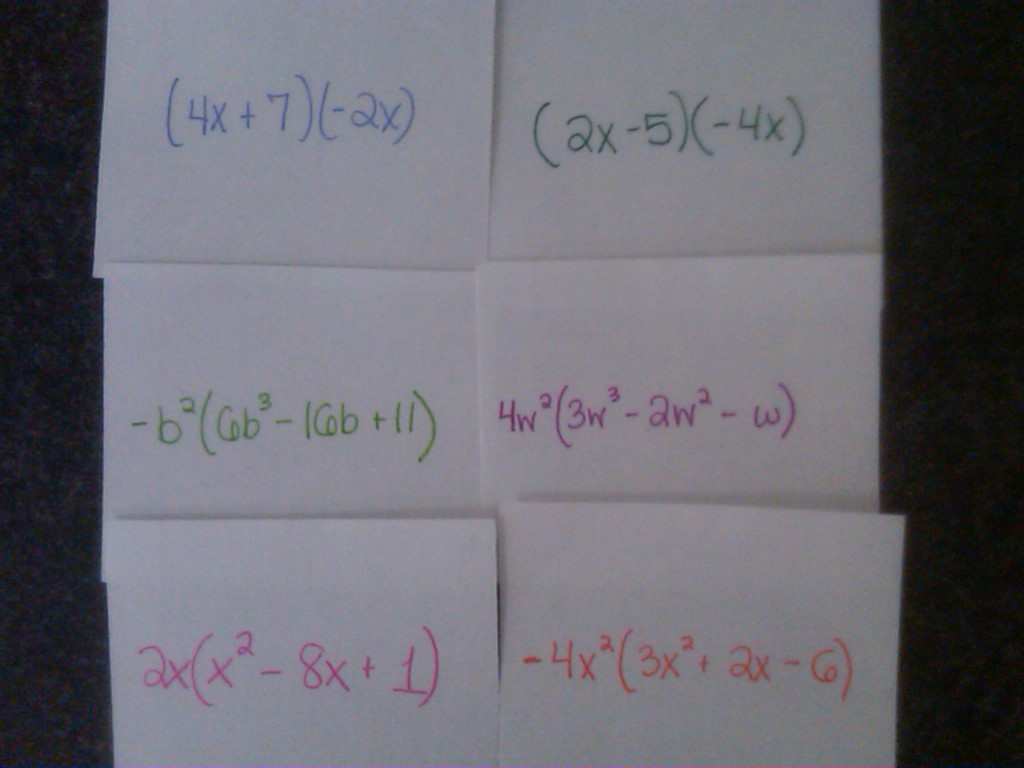 (4x + 7)(-2x)
(2x - 5)(-4x)
-b²(6b³ - 16b + 11)
4w²(3w³ - 2w² - w)
2x(x² - 8x + 1)
-4x²(3x² + 2x - 6)